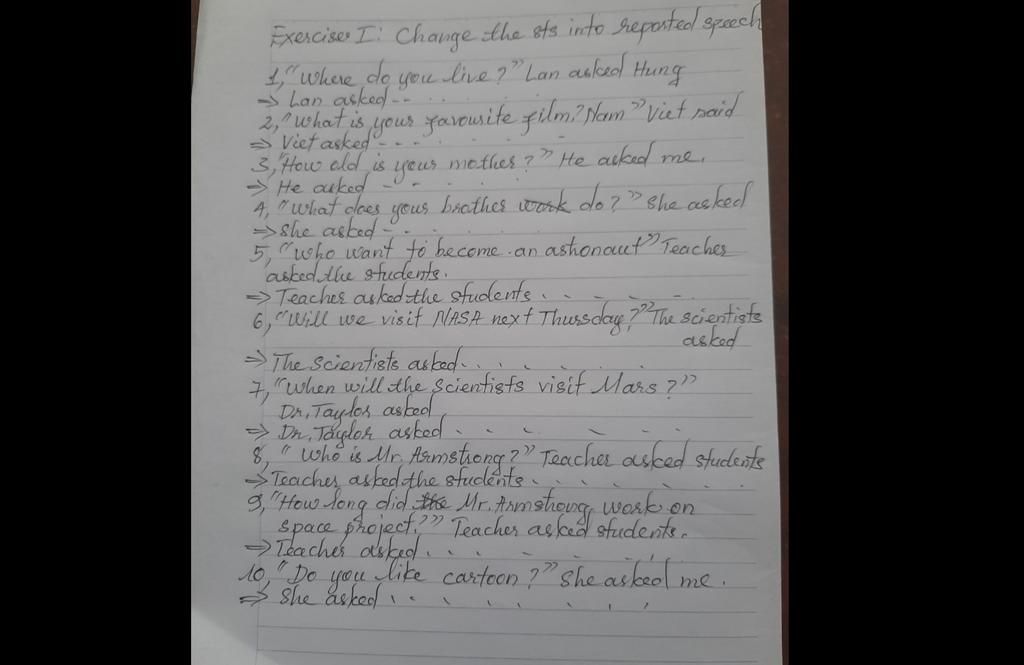 Exercise I: Change the sts into reported speech
1, "Where do you live?" Lan asked Hung
=> Lan asked -- . . . . . .
2, "What is your favourite film? Nam" Viet said
=> Viet asked --- . . . . .
3, "How old is your mother?" He asked me.
=> He asked - - . . . .
4, "What does your brother work do?" She asked
=> She asked - - . . . .
5, "Who want to become an astronaut" Teacher
asked the students.
=> Teacher asked the students . . - - - .
6, "Will we visit NASA next Thursday?" The scientists
asked
=> The scientists asked . . . . . . .
7, "When will the scientists visit Mars?"
Dr. Taylor asked
=> Dr. Taylor asked . . . - -
8, "Who is Mr. Armstrong?" Teacher asked students
=> Teacher asked the students . . . . . . .
9, "How long did the Mr. Armstrong work on
space project?" Teacher asked students.
=> Teacher asked . . . - - . .
10, "Do you like cartoon?" She asked me.
=> She asked . . . . . . .